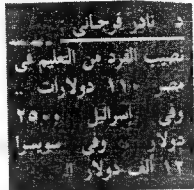 د. نادر فرجانى
نصيب الفرد من التعليم فى
مصر ١١٠ دولارات ..
وفى اسرائيل ٢٥٠٠
دولار وفى سويسرا
١٢ ألف دولار !!